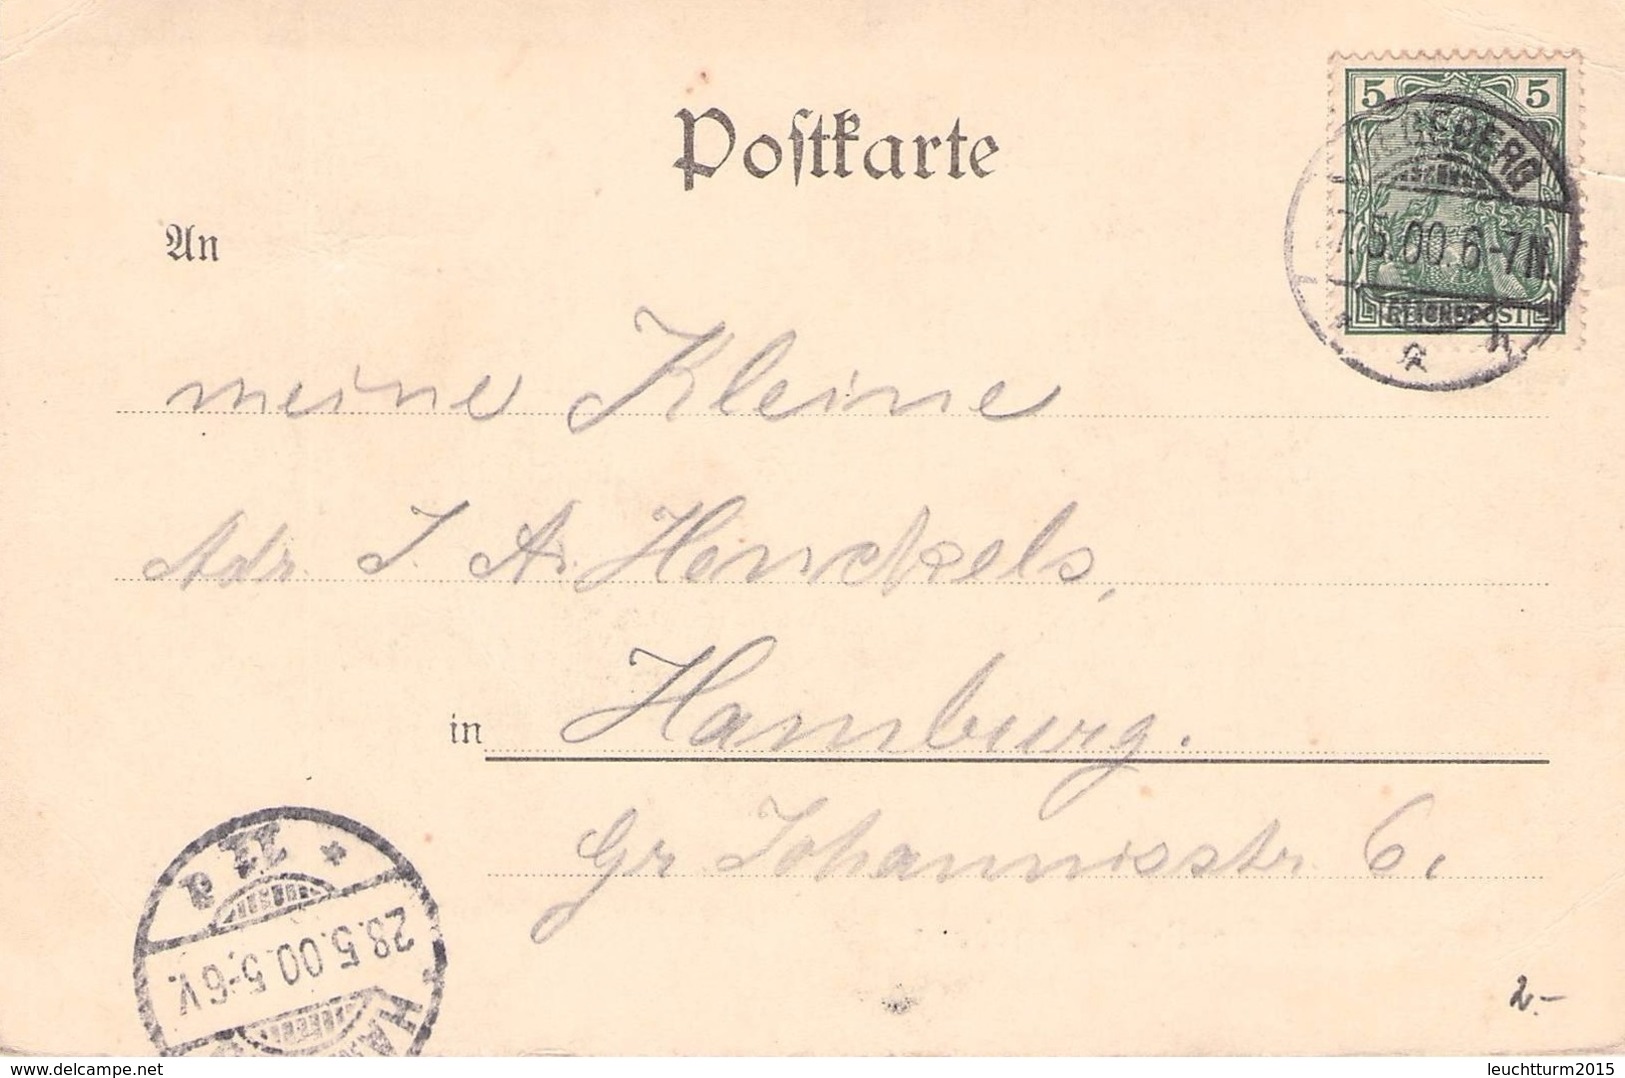 Postkarte
5 5
7.5.00.6-7N.
REICHSPOST
a h
An
meine Kleine
Adr. J. A. Henckels,
in Hamburg.
Gr. Johannisstr. 6.
28.5.00.5-6V.
2.-
www.delcampe.net
leuchtturm2015